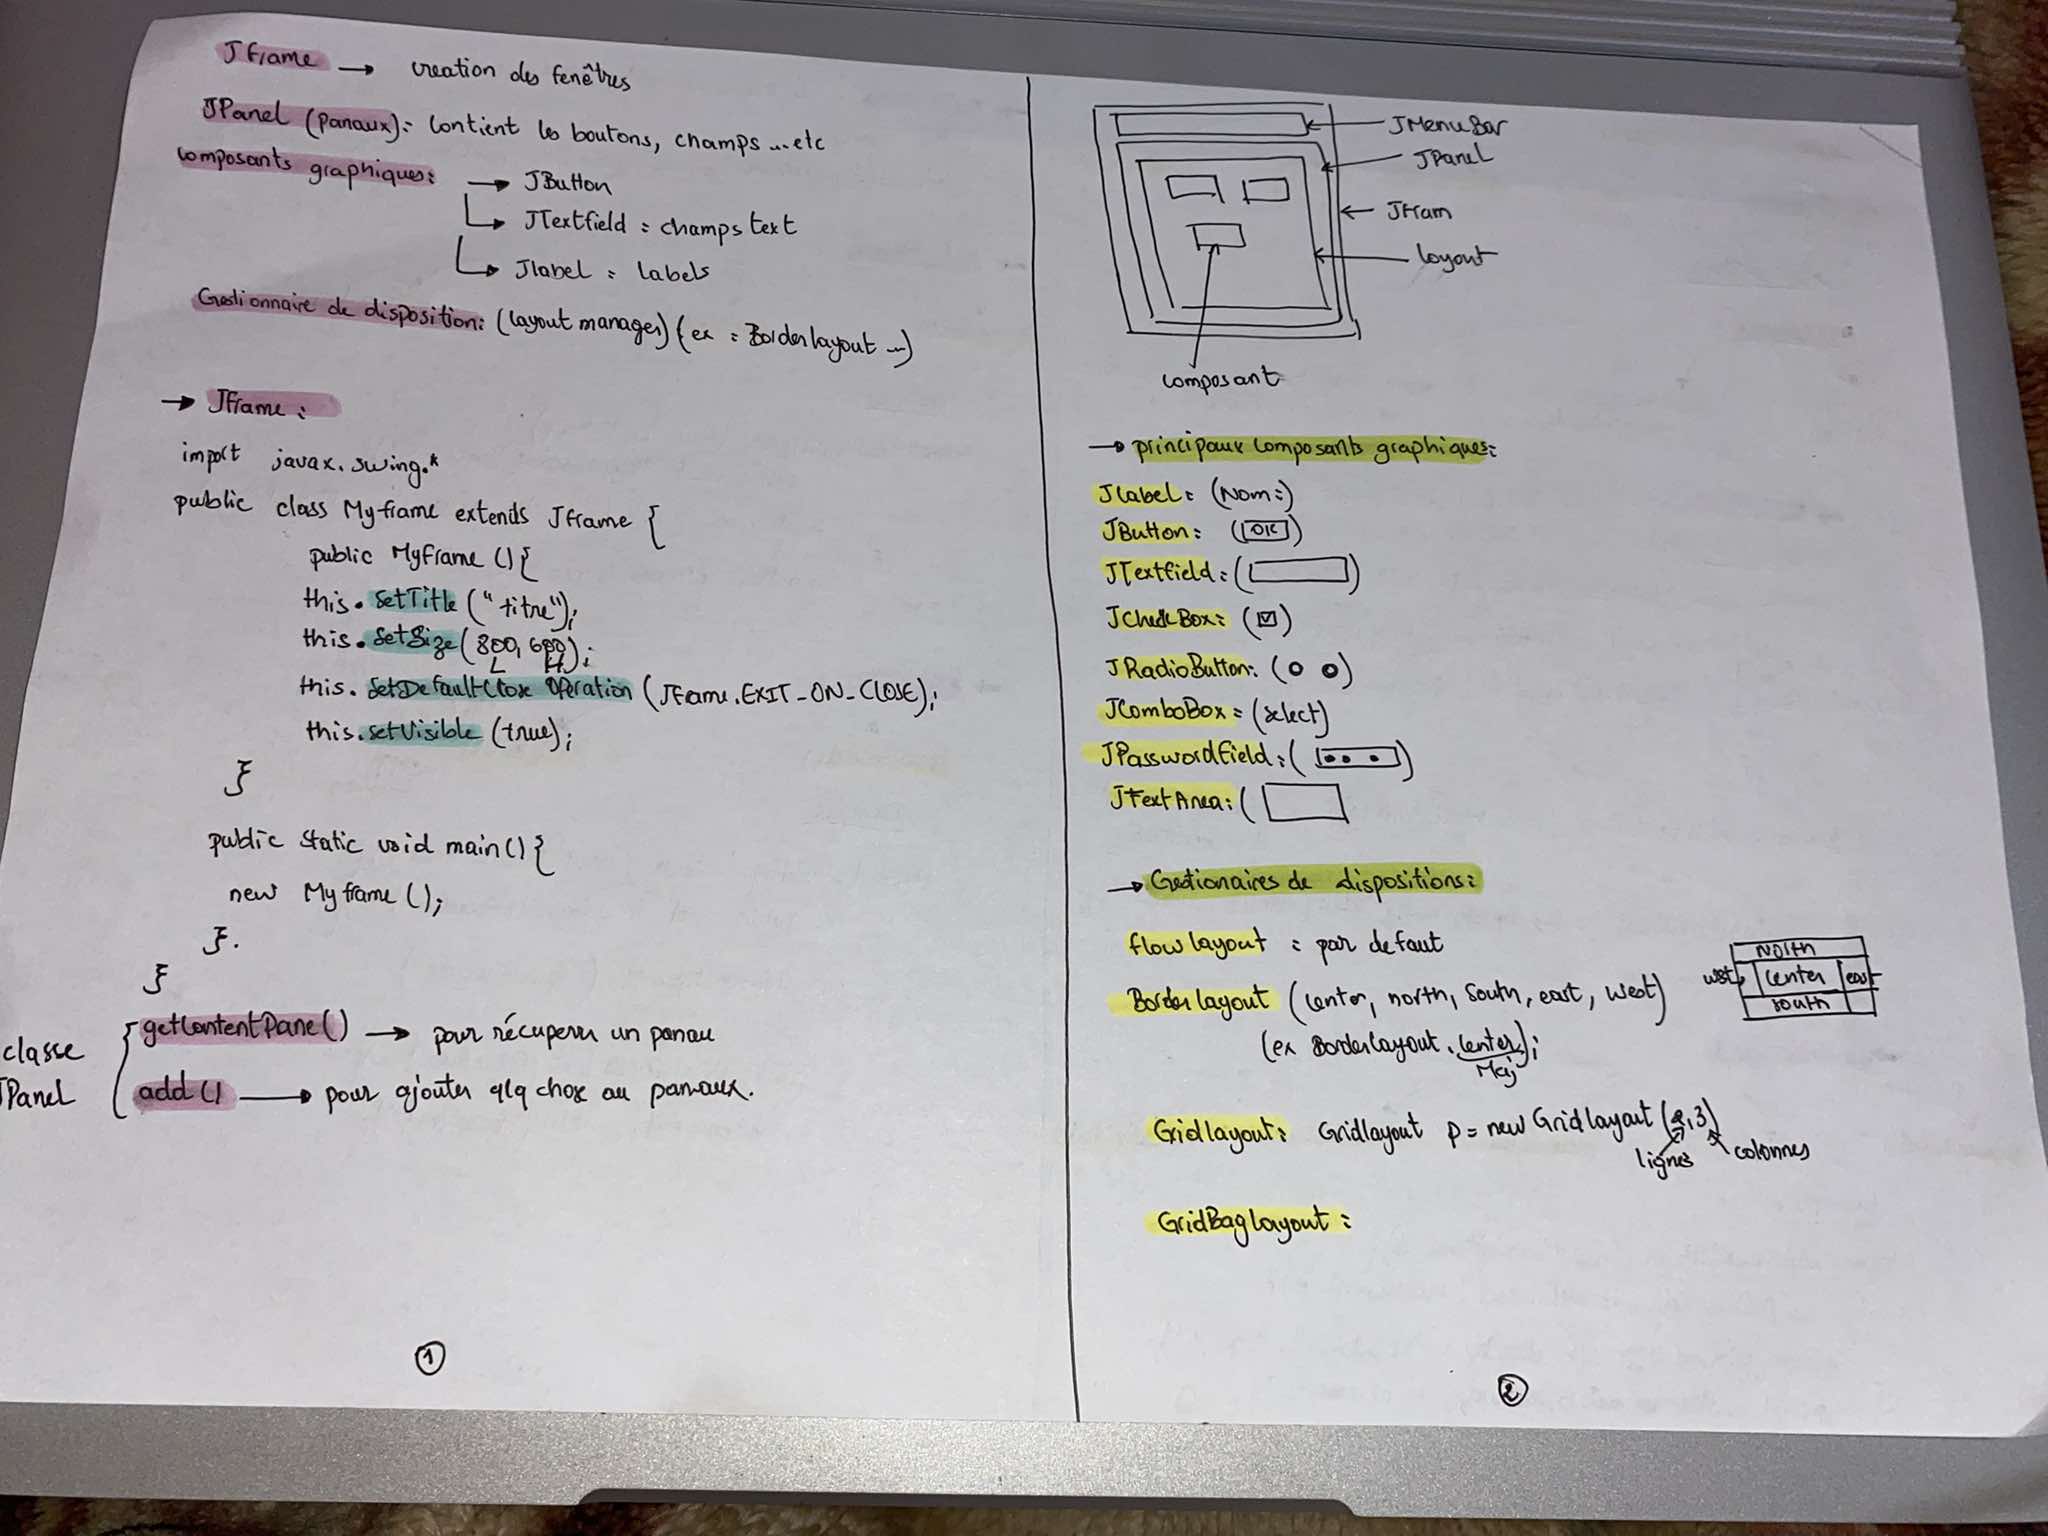 JFrame → creation des fenêtres
JPanel (panaux): contient les boutons, champs ... etc
composants graphiques: → JButton
→ JTextfield = champs text
→ Jlabel = labels
Gestionnaire de disposition: (layout manager) (ex = Borderlayout ...)
→ JFrame:
import javax.swing.*
public class Myframe extends Jframe {
public Myframe () {
this. setTitle ("titre");
this. setSize (800, 600);
L H
this. setDefaultClose Operation (JFrame.EXIT_ON_CLOSE);
this. setVisible (true);
}
public static void main() {
new Myframe ();
}.
}
classe JPanel
getContentPane() → pour récuperer un panau
add() → pour ajouter qlq chose au panaux.
①
JMenuBar
JPanel
JFram
layout
composant
→ principaux composants graphiques:
Jlabel: (Nom:)
JButton: (OK)
JTextfield: ( )
JCheckBox: (☑)
JRadioButton: (○ ○)
JComboBox = (select)
JPasswordfield: (• • •)
JTextArea: (
→ Gestionaires de dispositions:
flow layout : par defaut
North
west center east
south
Border layout (center, north, south, east, west)
(ex Borderlayout. center);
Maj
Gridlayout: Gridlayout p = new Gridlayout (2,3)
lignes colonnes
GridBaglayout :
②